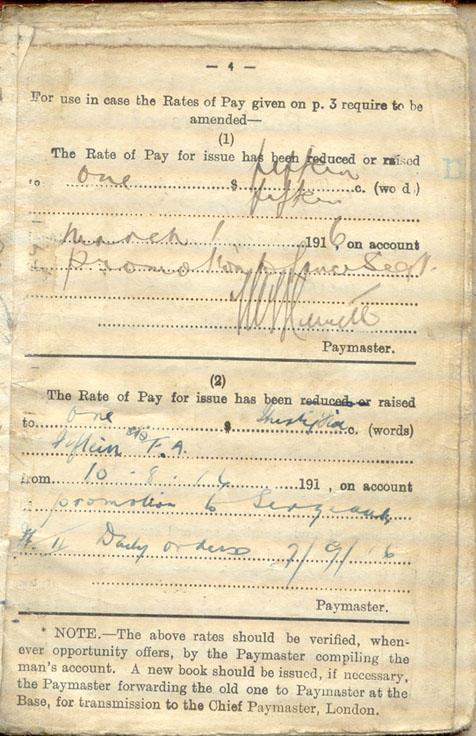 — 4 —
For use in case the Rates of Pay given on p. 3 require to be
amended—
(1)
The Rate of Pay for issue has been reduced or raised
to one $ fifteen c. (words)
fifteen
March 1 1916, on account
promotion to Lance Sergt.
Paymaster.
(2)
The Rate of Pay for issue has been reduced or raised
to one $ c. (words)
fifteen F.A.
from 10.8.16 191 , on account
promotion to Sergeant
Daily orders 2/9/16
Paymaster.
* NOTE.—The above rates should be verified, when-
ever opportunity offers, by the Paymaster compiling the
man's account. A new book should be issued, if necessary,
the Paymaster forwarding the old one to Paymaster at the
Base, for transmission to the Chief Paymaster, London.